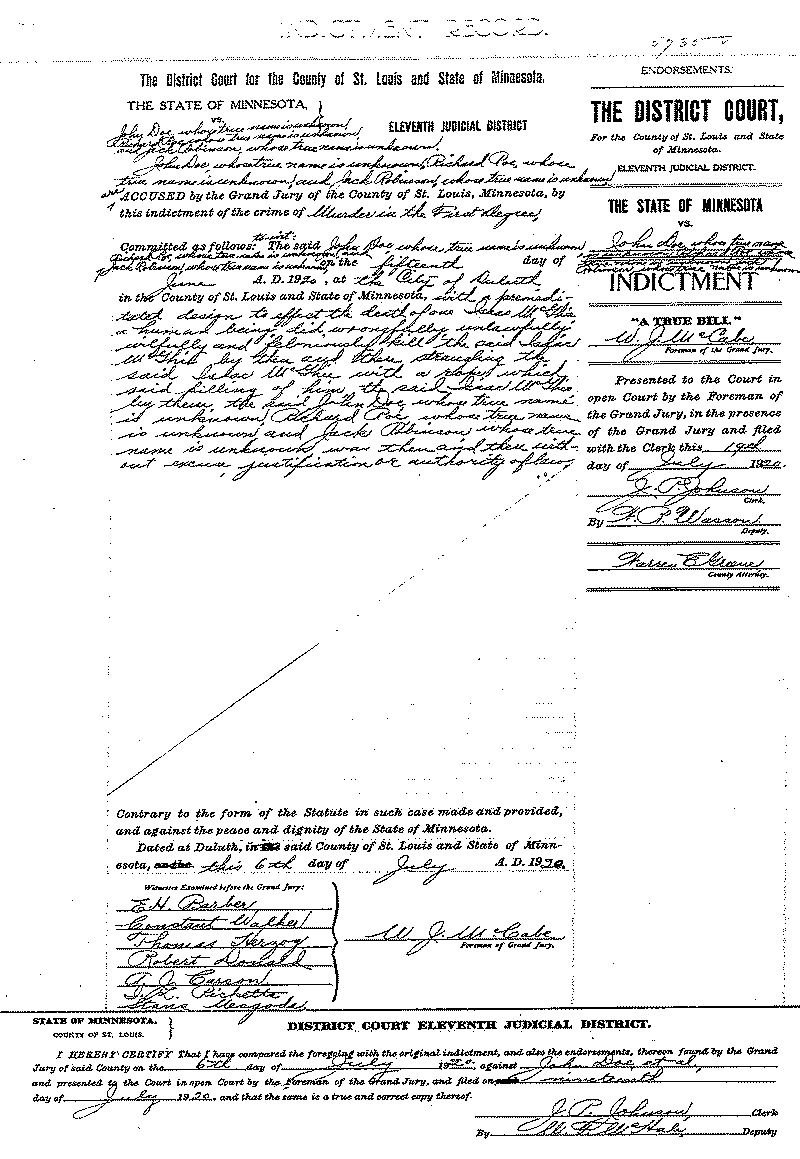 INDICTMENT RECORD.
The District Court for the County of St. Louis and State of Minnesota.
THE STATE OF MINNESOTA,
vs.
John Doe, whose true name is unknown,
Richard Roe, whose true name is unknown,
and Jack Robinson, whose true name is unknown,
ELEVENTH JUDICIAL DISTRICT
John Doe, whose true name is unknown, Richard Roe, whose
true name is unknown, and Jack Robinson, whose true name is unknown
are ACCUSED by the Grand Jury of the County of St. Louis, Minnesota, by
this indictment of the crime of Murder in the First Degree,
to-wit:
Committed as follows: The said John Doe whose true name is unknown
Richard Roe, whose true name is unknown, and
Jack Robinson, whose true name is unknown on the fifteenth day of
June A. D. 1920, at the City of Duluth
in the County of St. Louis and State of Minnesota, with a premedi-
tated design to effect the death of one Isaac McGhie
a human being, did wrongfully unlawfully
wilfully and feloniously kill the said Isaac
McGhie by then and there strangling the
said Isaac McGhie with a rope, which
said killing of him the said Isaac McGhie
by them, the said John Doe, whose true name
is unknown, Richard Roe, whose true name
is unknown and Jack Robinson whose true
name is unknown, was then and there with-
out excuse, justification or authority of law,
Contrary to the form of the Statute in such case made and provided,
and against the peace and dignity of the State of Minnesota.
Dated at Duluth, in the said County of St. Louis and State of Minn-
esota, this 6th day of July A. D. 1920.
Witnesses Examined before the Grand Jury:
E. H. Barber
Constant Walker
Thomas Herzog
Robert Donald
A. J. Carson
Ricketts
W. J. McCabe
Foreman of Grand Jury.
ENDORSEMENTS.
THE DISTRICT COURT,
For the County of St. Louis and State
of Minnesota.
ELEVENTH JUDICIAL DISTRICT.
THE STATE OF MINNESOTA
VS.
John Doe, whose true name
INDICTMENT
"A TRUE BILL."
W. J. McCabe
Foreman of the Grand Jury.
Presented to the Court in
open Court by the Foreman of
the Grand Jury, in the presence
of the Grand Jury and filed
with the Clerk this 19th
day of July 1920.
J. P. Johnson
Clerk.
By Wasson
Deputy.
Warren E. Greene
County Attorney.
STATE OF MINNESOTA.
COUNTY OF ST. LOUIS.
DISTRICT COURT ELEVENTH JUDICIAL DISTRICT.
I HEREBY CERTIFY That I have compared the foregoing with the original indictment, and also the endorsements, thereon found by the Grand
Jury of said County on the 6th day of July 1920 against John Doe, et al,
and presented to the Court in open Court by the Foreman of the Grand Jury, and filed on nineteenth
day of July 1920, and that the same is a true and correct copy thereof.
J. P. Johnson, Clerk
By Deputy